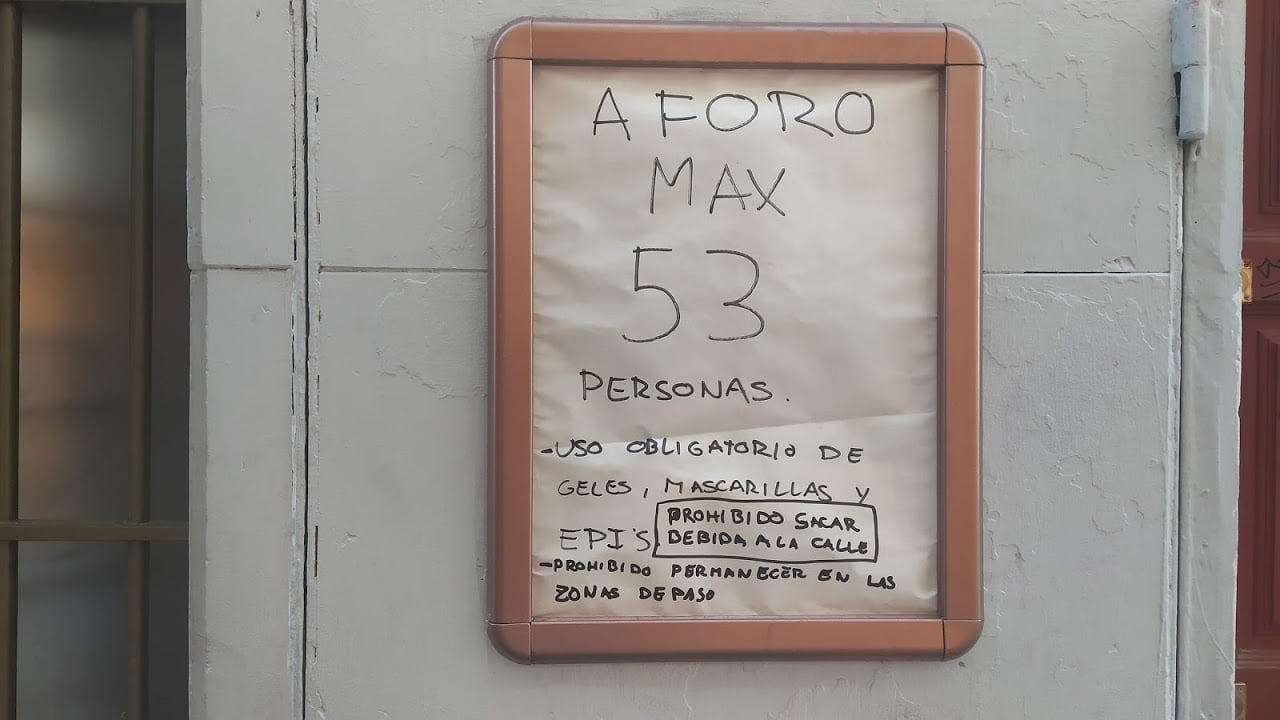 AFORO
MAX
53
PERSONAS.
-USO OBLIGATORIO DE
GELES, MASCARILLAS Y
EPI'S.
PROHIBIDO SACAR
DEBIDA A LA CALLE
-PROHIBIDO PERMANECER EN LAS
ZONAS DE PASO